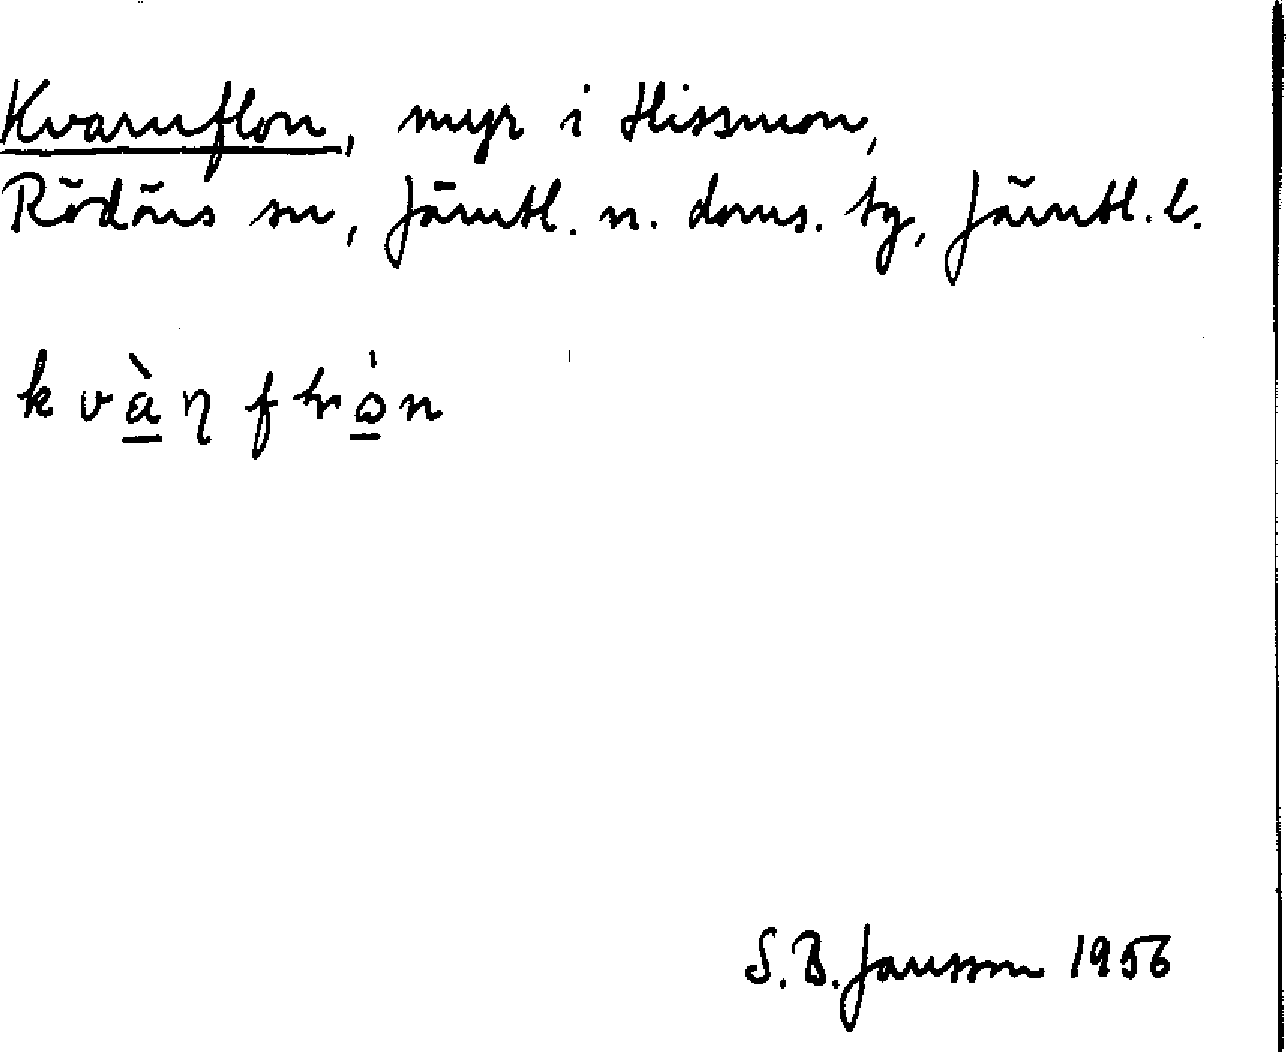 Kvarnflon, myr i Hissmon,
Rödöns sn, Jämtl. n. doms. tg, Jämtl. l.
S.B. Jansson 1956